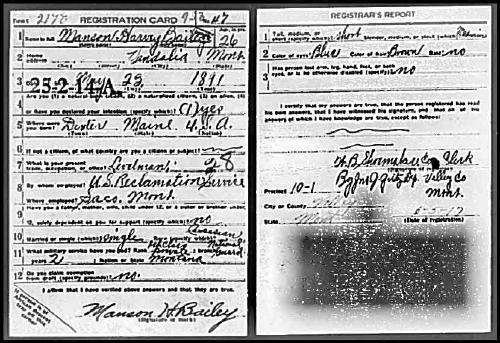 REGISTRATION CARD
1 Name in full Manson Harvy Bailey 26
2 Home address Vandalia Mont.
3 23 1891
25-2-14-A.
4 Are you (1) a natural-born citizen, (2) a naturalized citizen, (3) an alien, (4)
or have you declared your intention (specify which)? (1) yes
5 Where were you born? Dexter Maine U.S.A.
6 If not a citizen, of what country are you a citizen or subject?
7 What is your present trade, occupation, or office? 28
8 By whom employed? U.S. Reclamation Service
Where employed? Saco, Mont.
9 Have you a father, mother, wife, child under 12, or a sister or brother under
12, solely dependent on you for support (specify which)? no
10 Married or single (which)? Single Race (specify which)? Caucasian
11 What military service have you had? Rank private branch National Guard
years 2 Nation or State Montana
12 Do you claim exemption from draft (specify grounds)? no.
I affirm that I have verified above answers and that they are true.
Manson H. Bailey
(Signature or mark)
REGISTRAR'S REPORT
1 Tall, medium, or short (specify which)? Short Slender, medium, or stout (which)?
2 Color of eyes? Blue Color of hair? Brown Bald? no
3 Has person lost arm, leg, hand, foot, or both
eyes, or is he otherwise disabled (specify)? no
I certify that my answers are true, that the person registered has read
his own answers, that I have witnessed his signature, and that all of his
answers of which I have knowledge are true, except as follows:
Co. Clerk
Valley Co
Precinct 10-1 Mont.
City or County
State
(Date of registration)